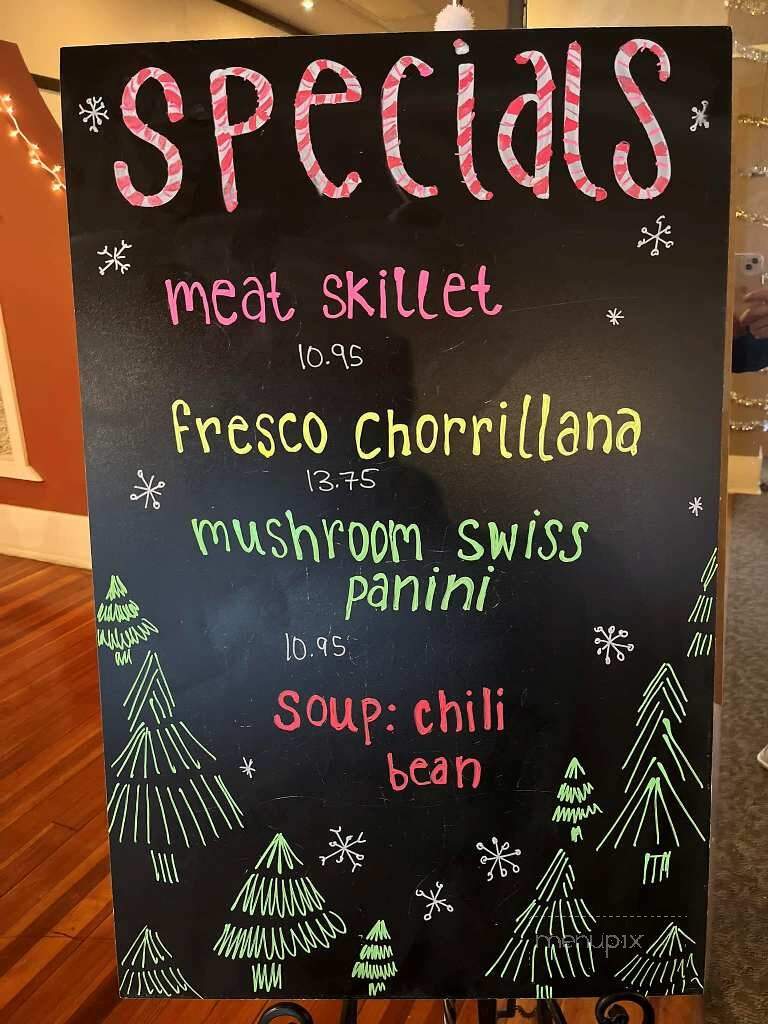 specials
meat skillet
10.95
fresco chorrillana
13.75
mushroom swiss
panini
10.95
soup: chili
bean
menupix